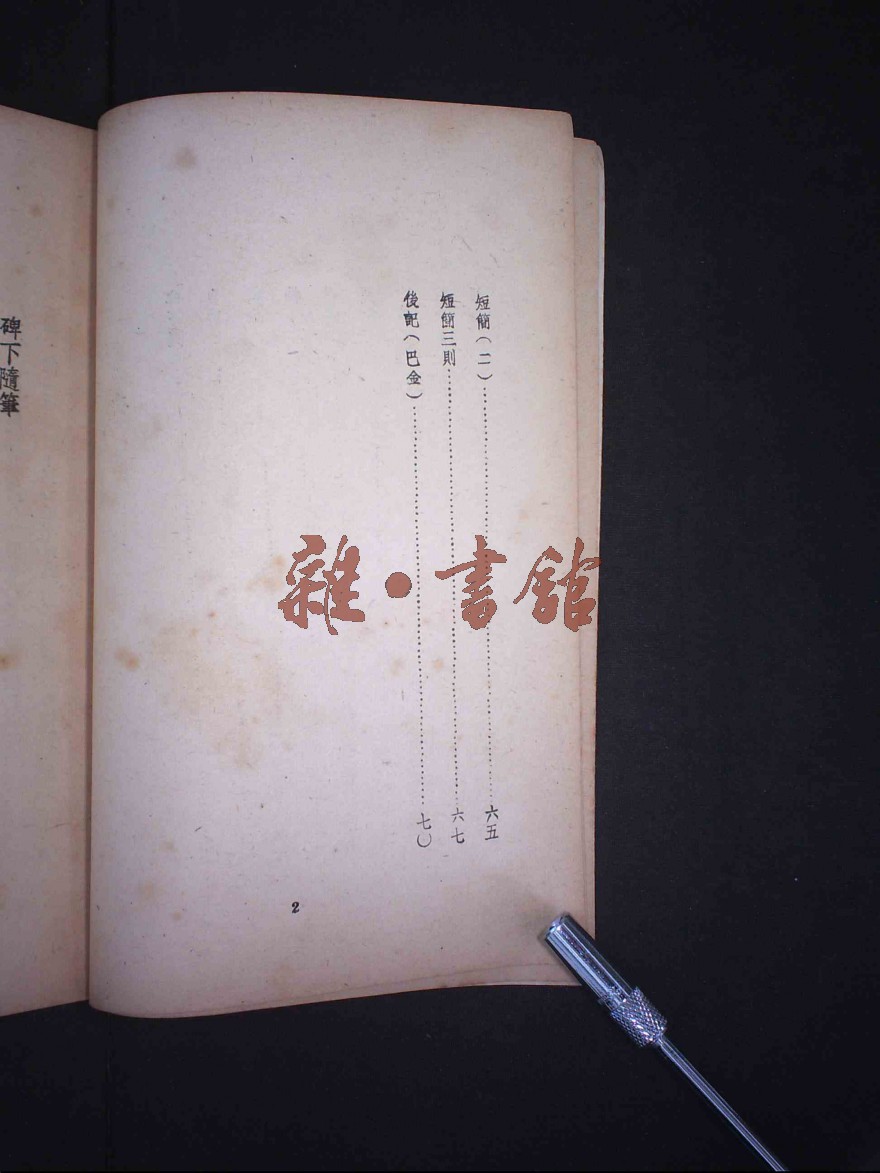 短簡(二)……六五
短簡三則……六七
後記(巴金)……七〇
2
碑下隨筆
雜·書館